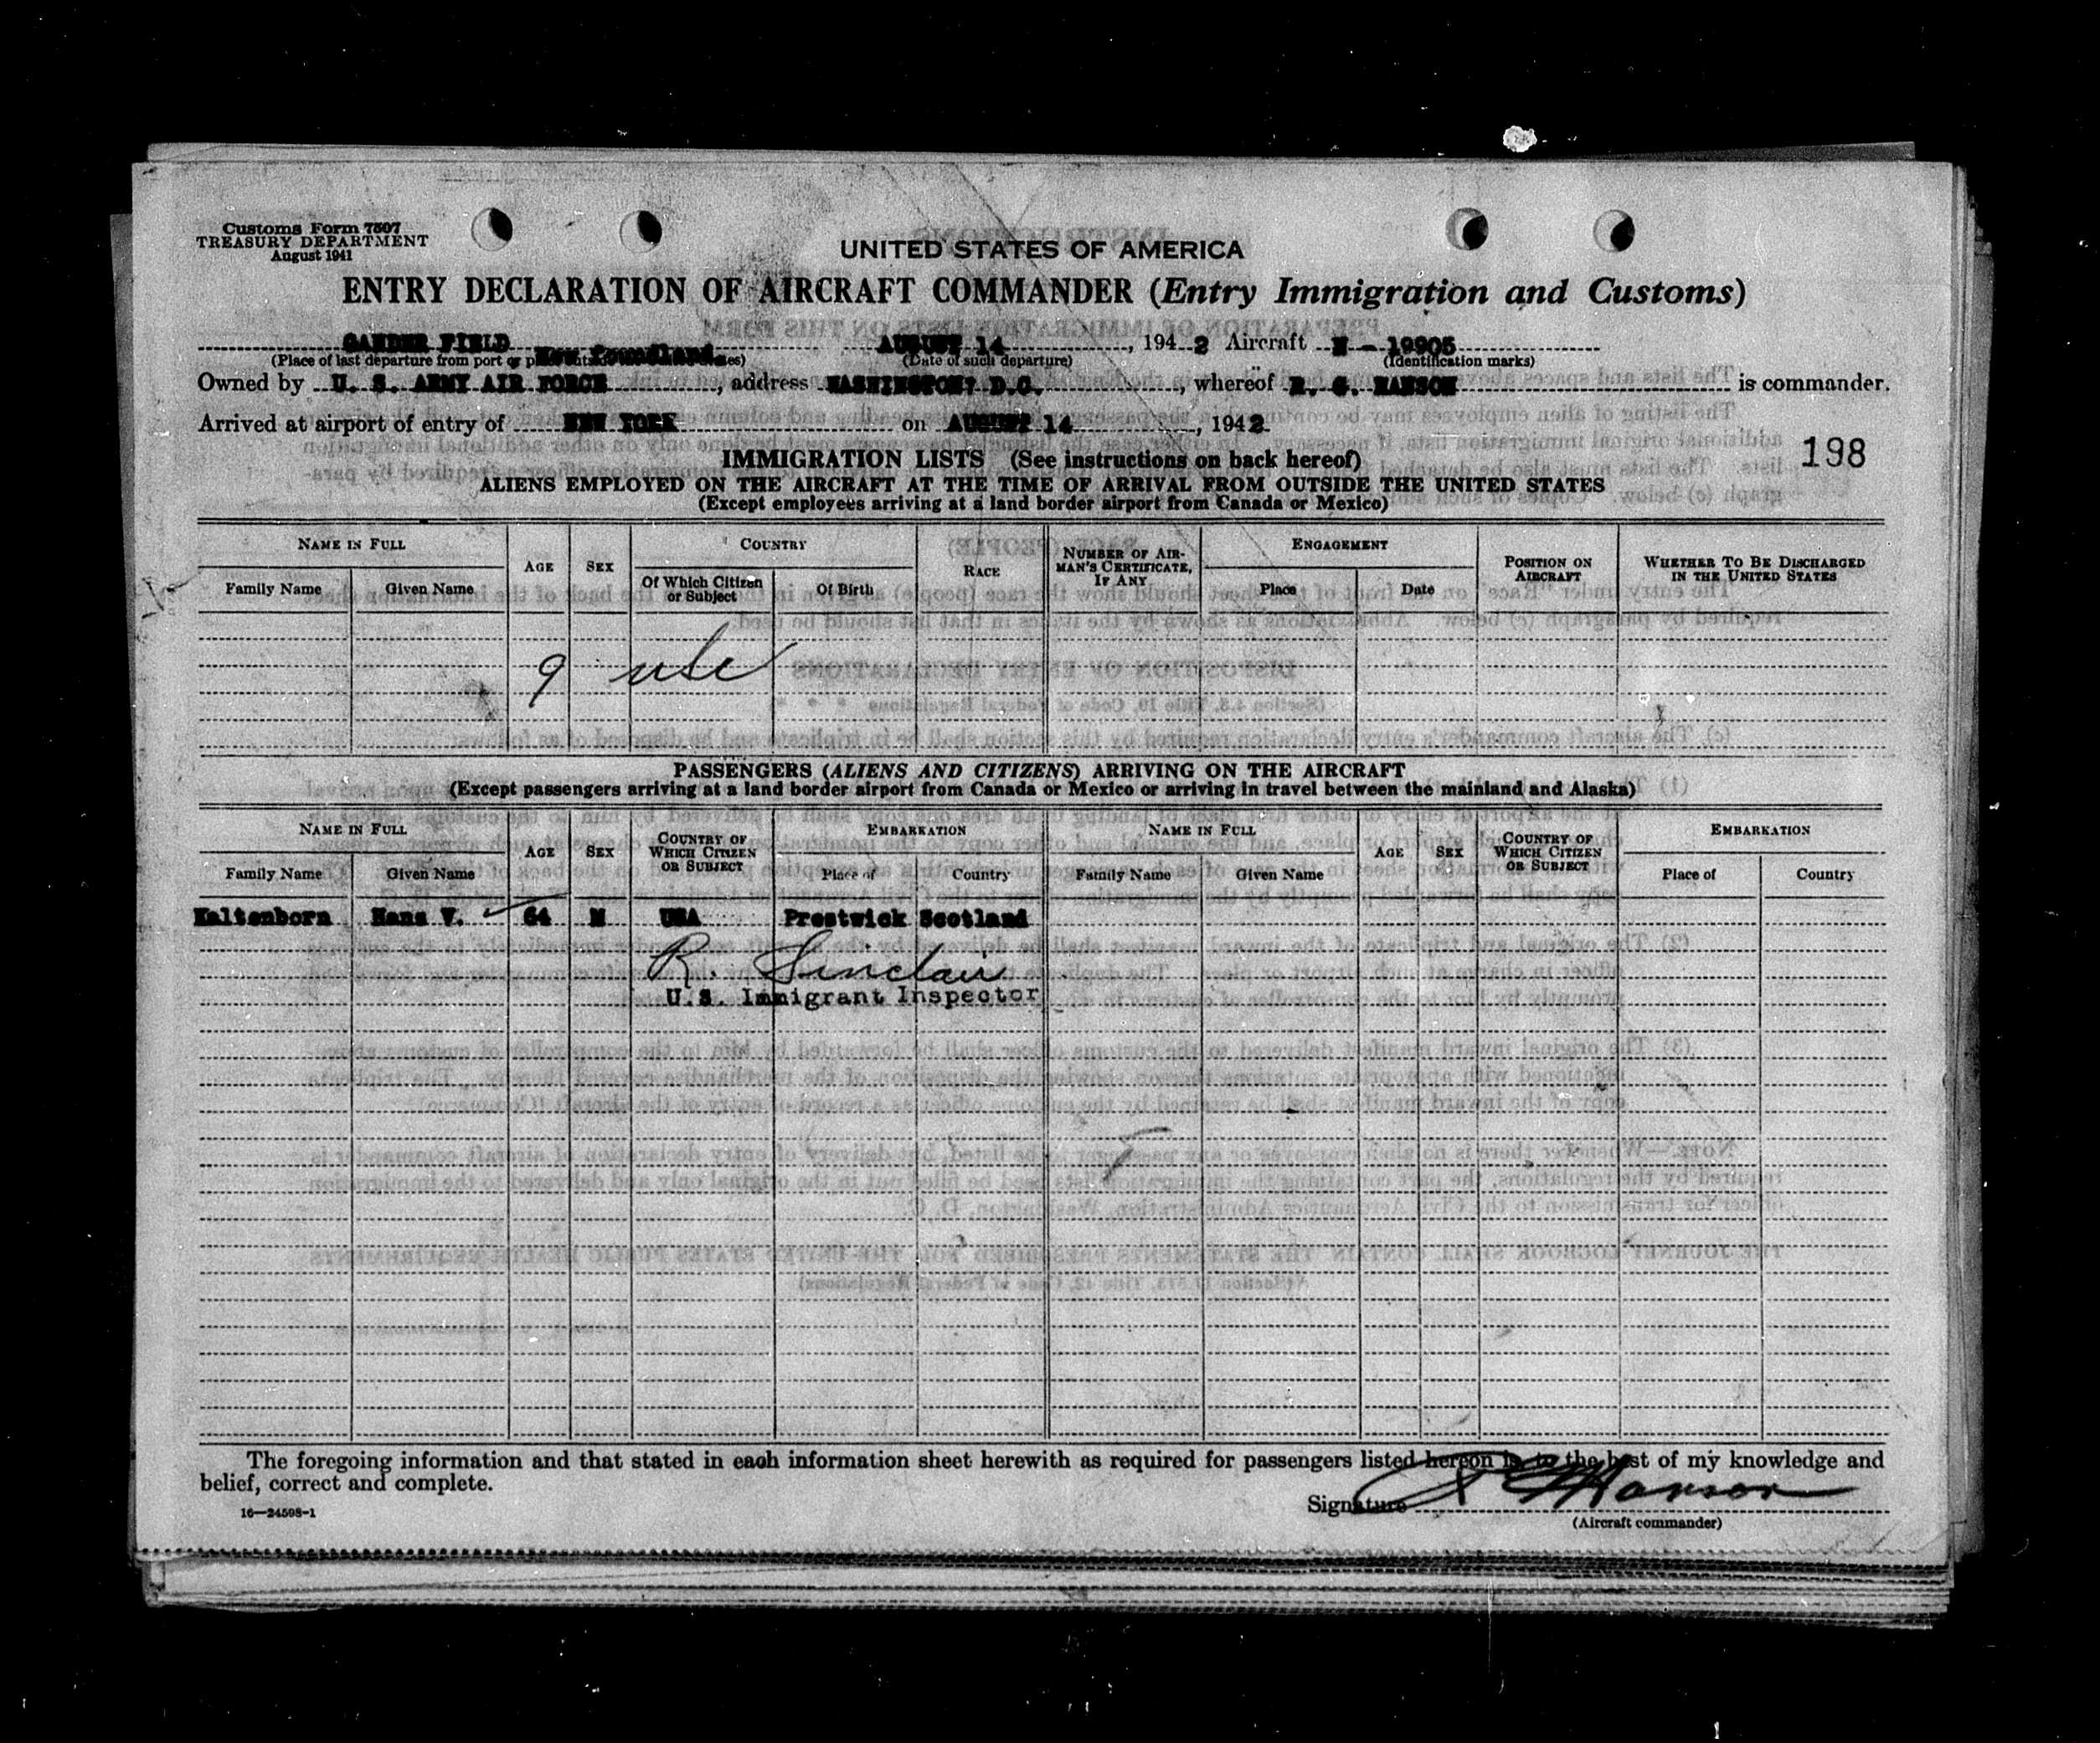 Customs Form 7507
TREASURY DEPARTMENT
August 1941
UNITED STATES OF AMERICA
ENTRY DECLARATION OF AIRCRAFT COMMANDER (Entry Immigration and Customs)
GANDER FIELD New Foundland AUGUST 14, 1942 Aircraft N - 19905
(Place of last departure from port or (Date of such departure) (Identification marks)
Owned by U. S. ARMY AIR FORCE, address WASHINGTON, D.C., whereof R. G. HANSON is commander.
Arrived at airport of entry of NEW YORK on AUGUST 14, 1942
198
IMMIGRATION LISTS (See instructions on back hereof)
ALIENS EMPLOYED ON THE AIRCRAFT AT THE TIME OF ARRIVAL FROM OUTSIDE THE UNITED STATES
(Except employees arriving at a land border airport from Canada or Mexico)
NAME IN FULL AGE SEX COUNTRY RACE NUMBER OF AIRMAN'S CERTIFICATE, IF ANY ENGAGEMENT POSITION ON AIRCRAFT WHETHER TO BE DISCHARGED IN THE UNITED STATES
Family Name Given Name Of Which Citizen or Subject Of Birth Place Date
9 usc
PASSENGERS (ALIENS AND CITIZENS) ARRIVING ON THE AIRCRAFT
(Except passengers arriving at a land border airport from Canada or Mexico or arriving in travel between the mainland and Alaska)
NAME IN FULL AGE SEX COUNTRY OF WHICH CITIZEN OR SUBJECT EMBARKATION NAME IN FULL AGE SEX COUNTRY OF WHICH CITIZEN OR SUBJECT EMBARKATION
Family Name Given Name Place of Country Family Name Given Name Place of Country
Kaltenborn Hans V. 64 M USA Prestwick Scotland
R. Sinclair
U.S. Immigrant Inspector
The foregoing information and that stated in each information sheet herewith as required for passengers listed hereon is to the best of my knowledge and
belief, correct and complete.
16—24598-1
Signature R G Hanson
(Aircraft commander)